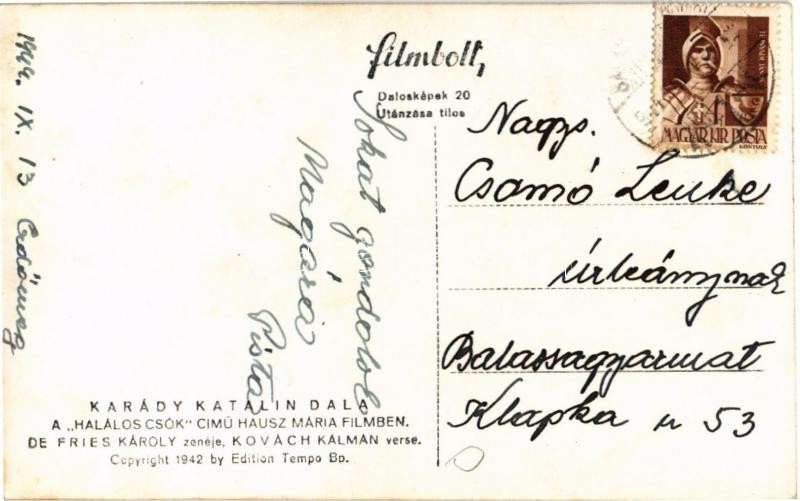 1944. IX. 13 Erdőmeg
filmbolt,
Dalosképek 20
Utánzása tilos
Sokat gondolok
Magára
Pista
KARÁDY KATALIN DALA
A „HALÁLOS CSÓK" CIMŰ HAUSZ MÁRIA FILMBEN.
DE FRIES KÁROLY zenéje, KOVÁCH KÁLMÁN verse.
Copyright 1942 by Edition Tempo Bp.
1P
MAGYAR KIR POSTA
Nagys.
Csomó Lenke
úrleánynak
Balassagyarmat
Klapka u 53